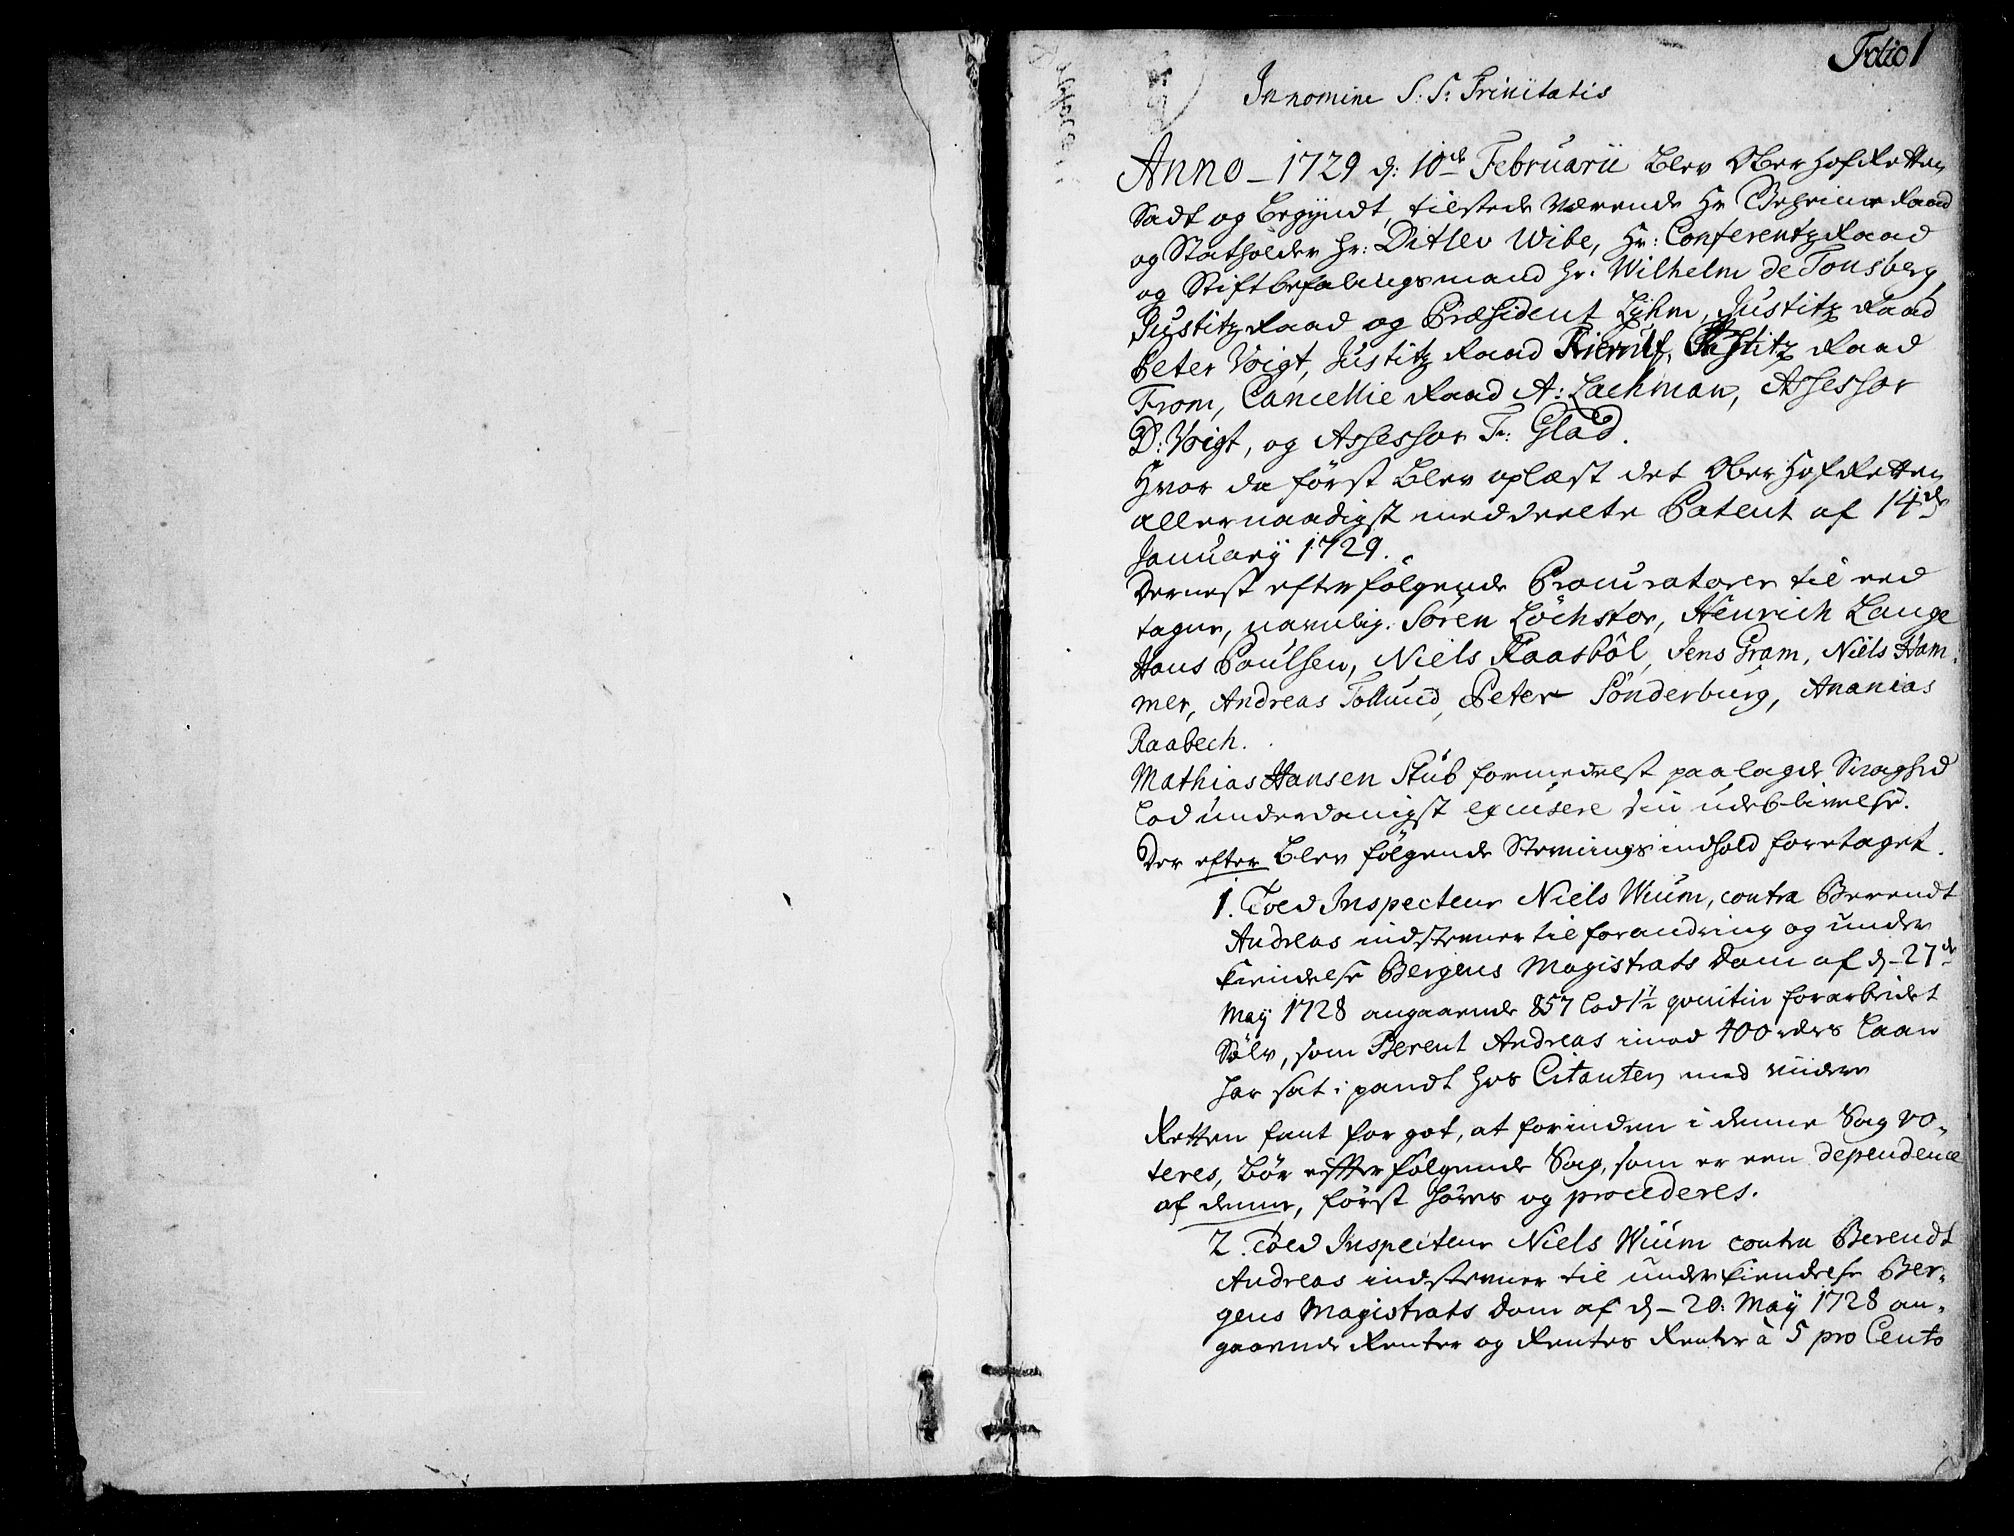 Folio 1
In nomine S: S: Trinitatis
Anno - 1729 d: 10de Februarii blev Ober Hof Retten
Sadt og begyndt, tilstede værende Hr Geheime Raad
og Statholder Hr: Ditlev Wibe, Hr: Conferentz Raad
og Stiftbefalingsmand Hr. Wilhelm de Tonsberg,
Justitz Raad og Præsident Lyhm, Justitz Raad
Peter Voigt, Justitz Raad Kierulf, Justitz Raad
From, Cancellie Raad A: Lachman, Assessor
D: Voigt, og Assessor Fr: Glad.
Hvor da först blev oplæst det Ober Hof Retten
allernaadigst meddeelte Patent af 14de
January 1729.
Dernest efterfölgende Procuratorer til eed
tagne, navnlig. Sören Löchstor, Henrich Lange
Hans Poulsen, Niels Raasböl, Jens Gram, Niels Ham-
mer, Andreas Tollund, Peter Sönderburg, Ananias
Raabech.
Mathias Hansen Stub formedelst paalagde Svaghed
lod underdanigst excusere sin udeblivelse.
Der efter blev fölgende Stevnings indhold foretaget.
1. Toed Inspecteur Niels Wium, contra Berendt
Andreas indstevner til forandring og under
kiendelse Bergens Magistrats Dom af d- 27de
May 1728 angaaende 857 Lod 1½ qvintin forarbeidet
Sölv, som Berent Andreas imod 400 rdrs Laan
har sat i pandt hos Citanten med viidere
Retten fant for got, at forinden i denne Sag vo-
teres, bör effterfölgende Sag, som er een dependence
af denne, först höres og procederes.
2. Toed Inspecteur Niels Wium contra Berendt
Andreas indstevner til underkiendelse Ber-
gens Magistrats Dom af d- 20: May 1728 an-
gaaende Renter og Rentes Renter à 5 pro Cento